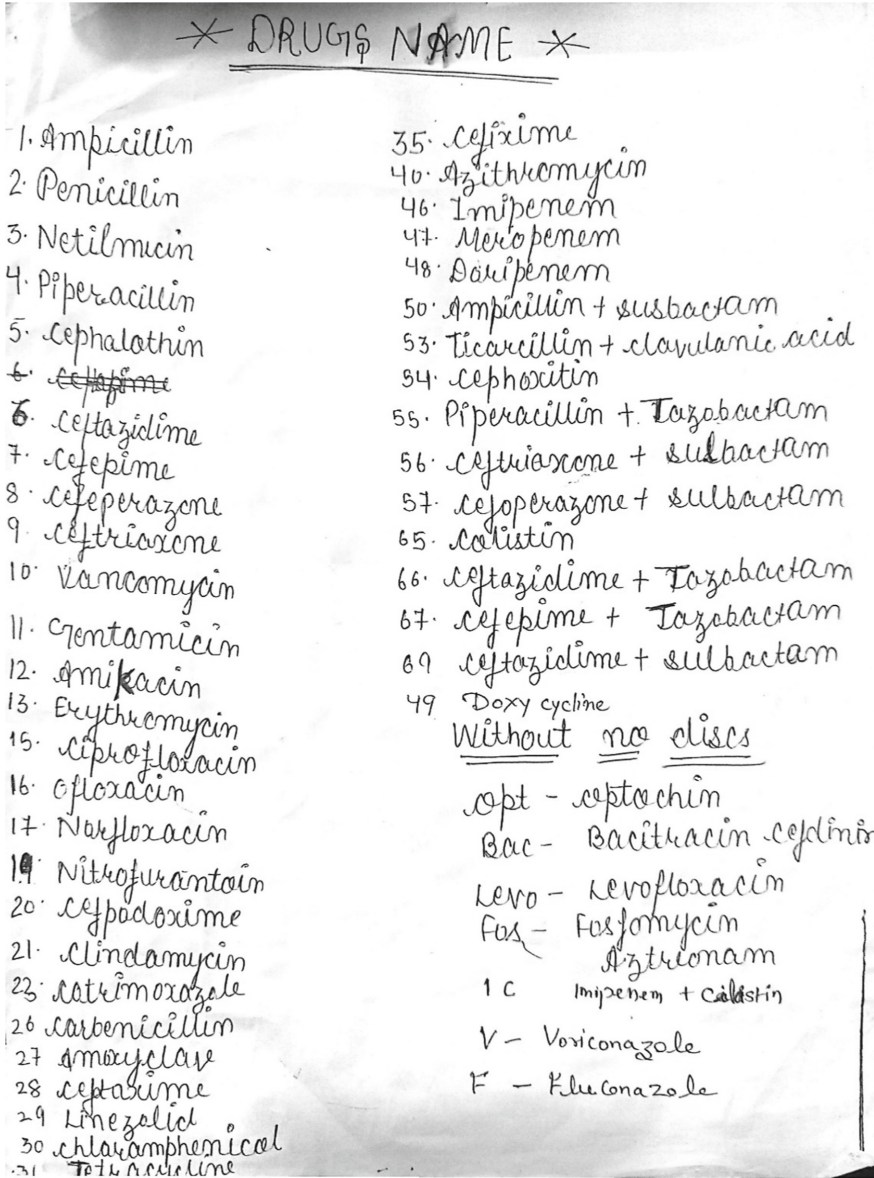 * DRUGS NAME *
1. Ampicillin
2. Penicillin
3. Netilmicin
4. Piperacillin
5. Cephalothin
6. Ceftazidime
7. Cefepime
8. Cefeperazone
9. Ceftriaxone
10. Vancomycin
11. Gentamicin
12. Amikacin
13. Erythromycin
15. Ciprofloxacin
16. Ofloxacin
17. Norfloxacin
19. Nitrofurantoin
20. Cefpodoxime
21. Clindamycin
23. Cotrimoxazole
26 Carbenicillin
27 Amoxyclave
28 Ceptaxime
29 Linezolid
30 Chloramphenical
31 Tetracycline
35. Cefixime
40. Azithromycin
46. Imipenem
47. Meropenem
48. Doripenem
50. Ampicillin + susbactam
53. Ticarcillin + clavulanic acid
54. Cephoxitin
55. Piperacillin + Tazobactam
56. Ceftriaxone + sulbactam
57. Cefoperazone + sulbactam
65. Colistin
66. Ceftazidime + Tazobactam
67. Cefepime + Tazobactam
69 Ceftazidime + sulbactam
49 Doxy cycline
Without no discs
Opt - Optochin
Bac - Bacitracin Cefdinir
Levo - Levofloxacin
Fos - Fosfomycin
Aztrionam
1 C Imipenem + Colistin
V - Voriconazole
F - Fluconazole